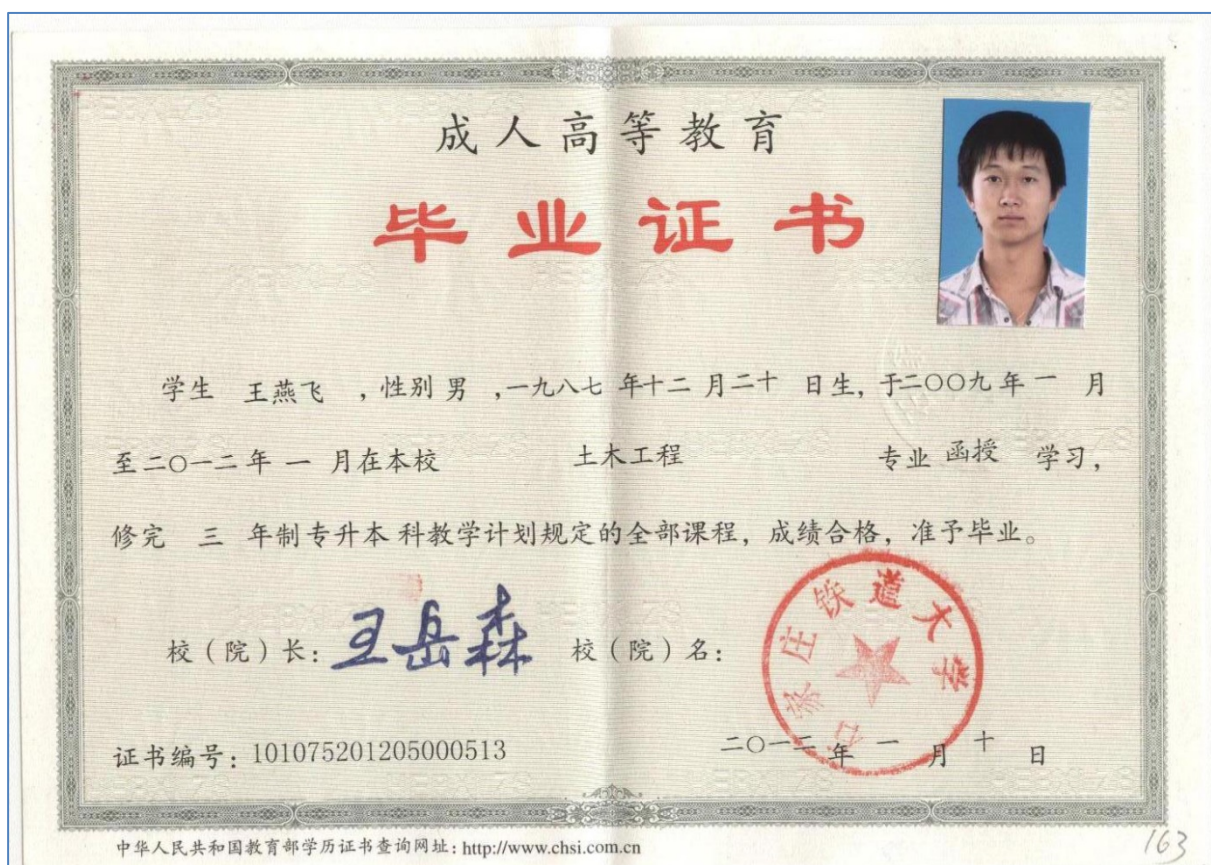 成人高等教育
毕业证书
学生 王燕飞 ，性别 男 ，一九八七 年十二 月二十 日生，于二〇〇九 年 一 月
至二〇一二 年 一 月在本校 土木工程 专业 函授 学习，
修完 三 年制 专升本 科教学计划规定的全部课程，成绩合格，准予毕业。
校（院）长：王岳森 校（院）名：
石家庄铁道大学
证书编号：101075201205000513
二〇一二 年 一 月 十 日
中华人民共和国教育部学历证书查询网址：http://www.chsi.com.cn
163